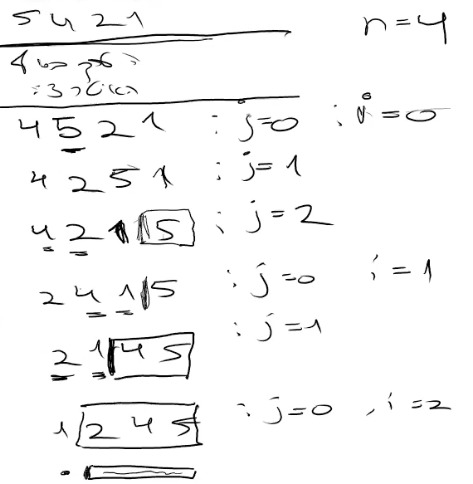 5 4 2 1 n=4
4 5 2 1 : j=0 : i=0
4 2 5 1 : j=1
4 2 1 5 : j=2
2 4 1 5 : j=0 i=1
2 1 4 5 : j=1
1 2 4 5 : j=0 , i=2